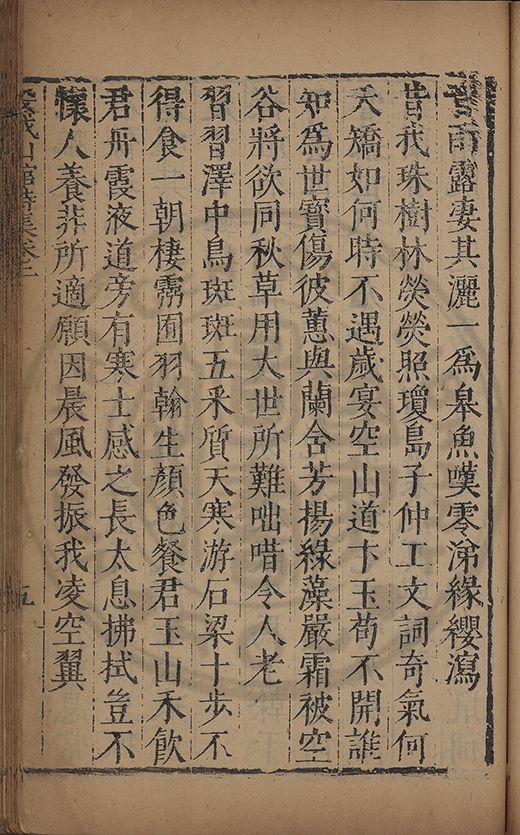 雨露凄其灑一為皋魚嘆零涕緣纓瀉
昔我珠樹林熒熒照瓊島子仲工文詞奇氣何
夭矯如何時不遇歲宴空山道卞玉苟不開誰
知為世寳傷彼蕙與蘭含芳揚綠藻嚴霜被空
谷將欲同秋草用大世所難咄唶令人老
習習澤中鳥斑斑五采質天寒游石梁十步不
得食一朝棲雺囿羽翰生顏色餐君玉山禾飲
君丹霞液道旁有寒士感之長太息拂拭豈不
懷人養非所適願因晨風發振我凌空翼
山館詩集卷二
五